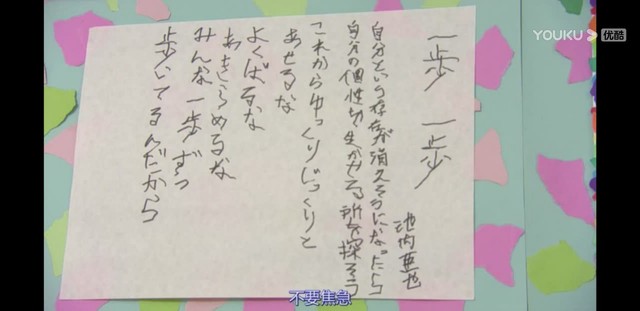 一歩一歩
池内亜也
自分という存在が消えそうになったら
自分の個性が生かせる所を探そう
これからゆっくりじっくりと
あせるな
よくばるな
あきらめるな
みんな一歩ずつ
歩いてるんだから
YOUKU 优酷
不要焦急